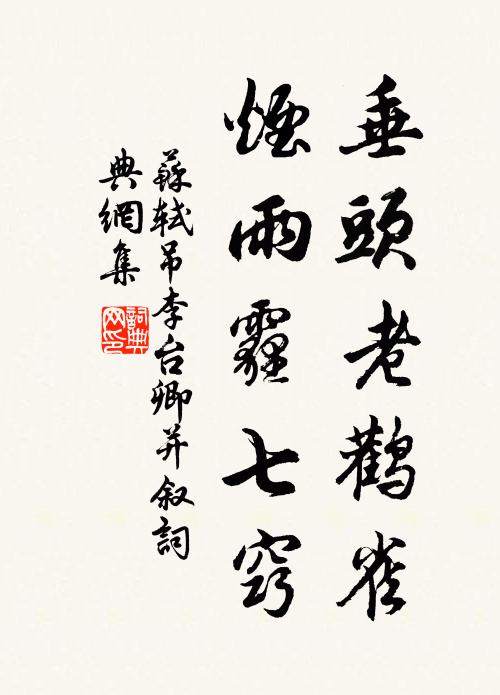 垂頭老鸛雀
煙雨霾七竅
蘇軾吊李台卿并叙詞
典網集
詞典网印